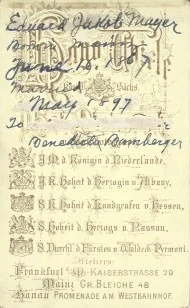 Eduard Jakob Mayer
Born Mainz
June 16. 187
Married
May 1897
To
Benedicta Bamberger
J. M. d. Königin d. Niederlande,
J. K. Hoheit d. Herzogin v. Albany,
S. K. Hoheit d. Landgrafen v. Hessen,
S. Hoheit d. Herzogs v. Nassau,
S. Durchl. d. Fürsten v. Waldeck Pyrmont.
Ateliers:
Frankfurt a/M. KAISERSTRASSE 29
Mainz GR. BLEICHE 48
Hanau PROMENADE AM WESTBAHNHOF